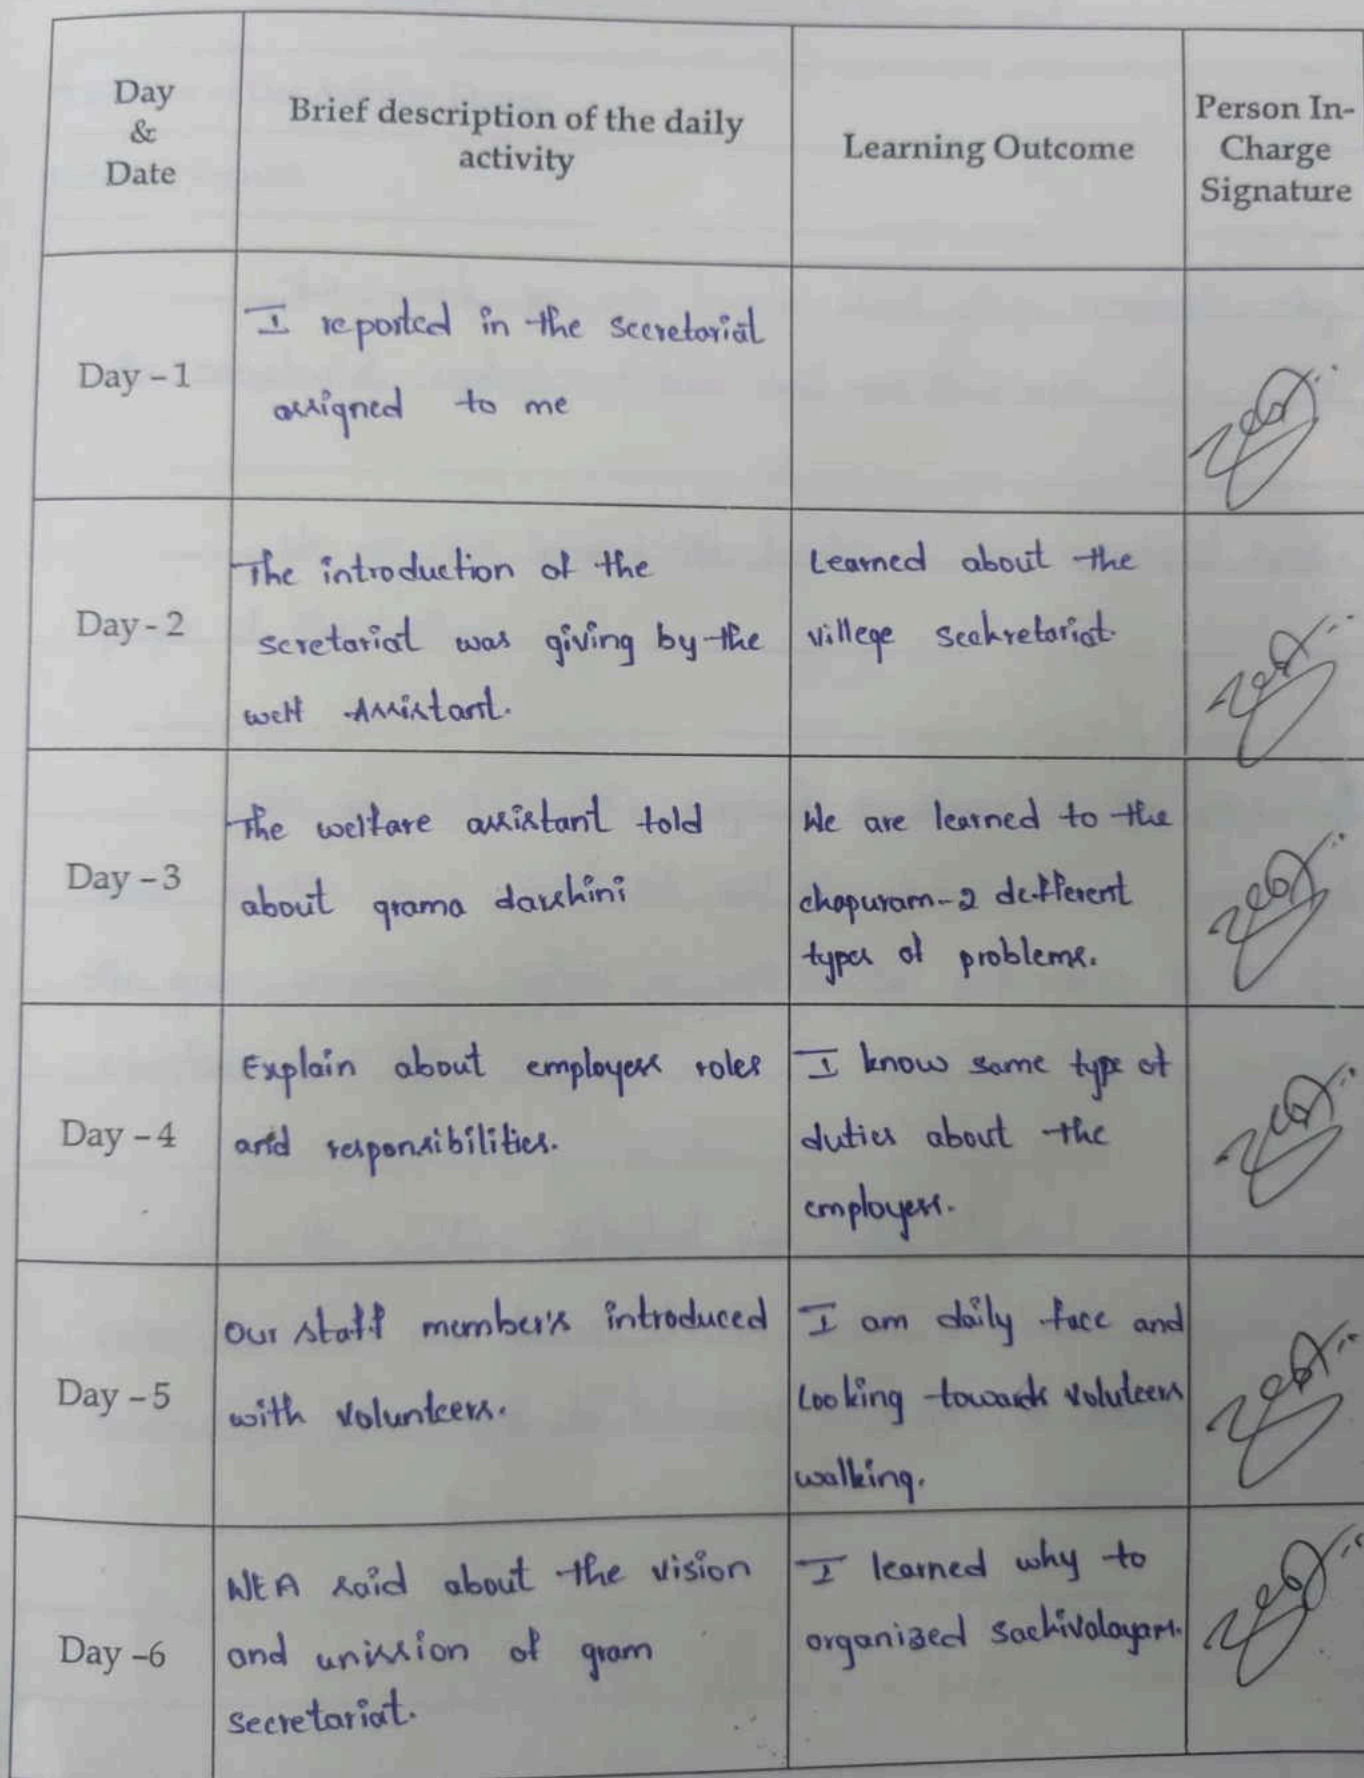 Day
&
Date
Brief description of the daily
activity
Learning Outcome
Person In-
Charge
Signature
Day - 1
I reported in the secretorial
assigned to me
Day - 2
The introduction of the
scretoriat was giving by the
Assistant.
Learned about the
villege seckretoriat.
Day - 3
The welfare assistant told
about grama darshini
We are learned to the
chapuram-2 defferent
types of problems.
Day - 4
Explain about employess roles
and responsibilities.
I know some type of
duties about the
employess.
Day - 5
Our staff member's introduced
with volunteers.
I am daily face and
Looking towards voluteers
walking.
Day -6
WEA said about the vision
and unission of gram
secretariat.
I learned why to
organized sachivalayam.